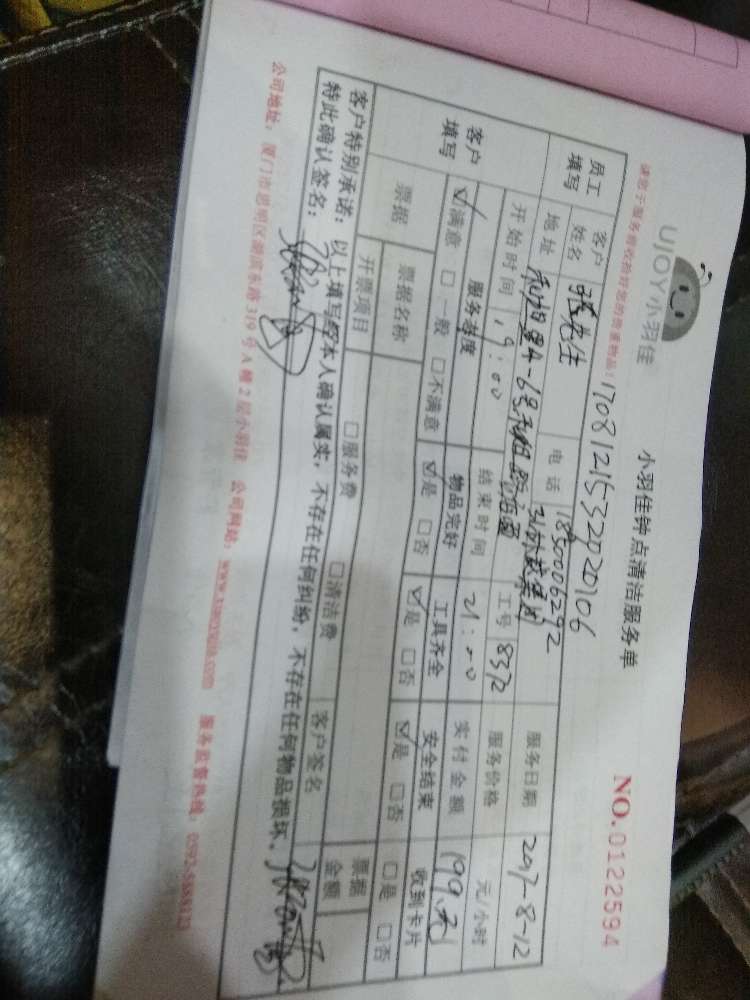 UJOY小羽佳
小羽佳钟点清洁服务单
NO.0122594
请您于服务前收拾好您的贵重物品！
1708121532020106
员工填写 客户姓名 张先生 电话 1850006292 服务日期 2017-8-12
地址 工号 8372 服务价格 元/小时
开始时间 19:00 结束时间 21:00 实付金额 199
客户填写 服务态度 物品完好 工具齐全 安全结束 收到卡片
☑满意 □一般 □不满意 ☑是 □否 ☑是 □否 ☑是 □否 □是 □否
票据 票据名称 □服务费 □清洁费 客户签名 票据金额
开票项目
客户特别承诺：以上填写经本人确认属实，不存在任何纠纷，不存在任何物品损坏。
特此确认签名：
公司地址：厦门市思明区湖滨东路319号A幢2层小羽佳 公司网站：www.xiaoyujia.com 服务监督热线：0592-5888123